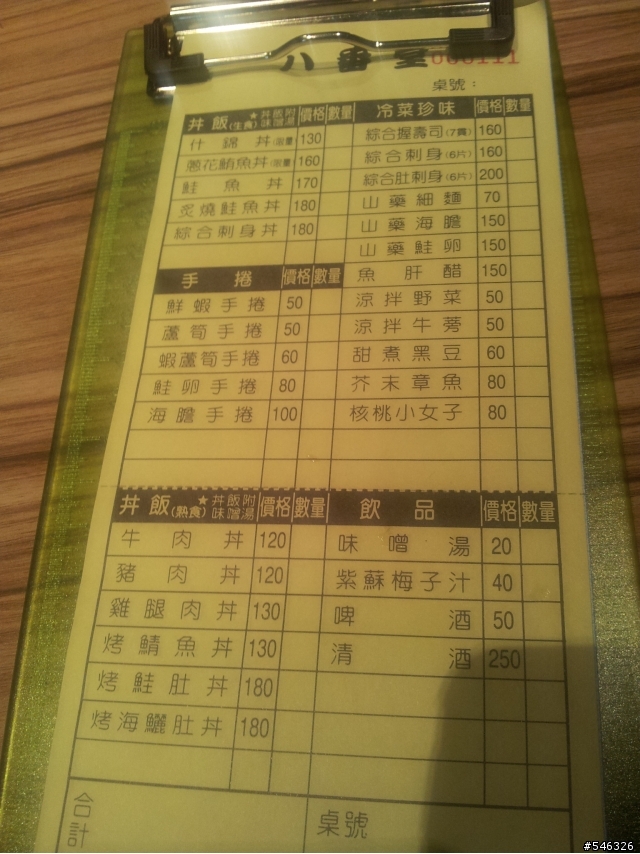 八番
000111
桌號：
丼飯(生食) ★丼飯附味噌湯 價格 數量
什錦丼(限量) 130
蔥花鮪魚丼(限量) 160
鮭魚丼 170
炙燒鮭魚丼 180
綜合刺身丼 180
手捲 價格 數量
鮮蝦手捲 50
蘆筍手捲 50
蝦蘆筍手捲 60
鮭卵手捲 80
海膽手捲 100
冷菜珍味 價格 數量
綜合握壽司(7貫) 160
綜合刺身(6片) 160
綜合肚刺身(6片) 200
山藥細麵 70
山藥海膽 150
山藥鮭卵 150
魚肝醋 150
涼拌野菜 50
涼拌牛蒡 50
甜煮黑豆 60
芥末章魚 80
核桃小女子 80
丼飯(熟食) ★丼飯附味噌湯 價格 數量
牛肉丼 120
豬肉丼 120
雞腿肉丼 130
烤鯖魚丼 130
烤鮭肚丼 180
烤海鱺肚丼 180
飲品 價格 數量
味噌湯 20
紫蘇梅子汁 40
啤酒 50
清酒 250
合計
桌號
#546326